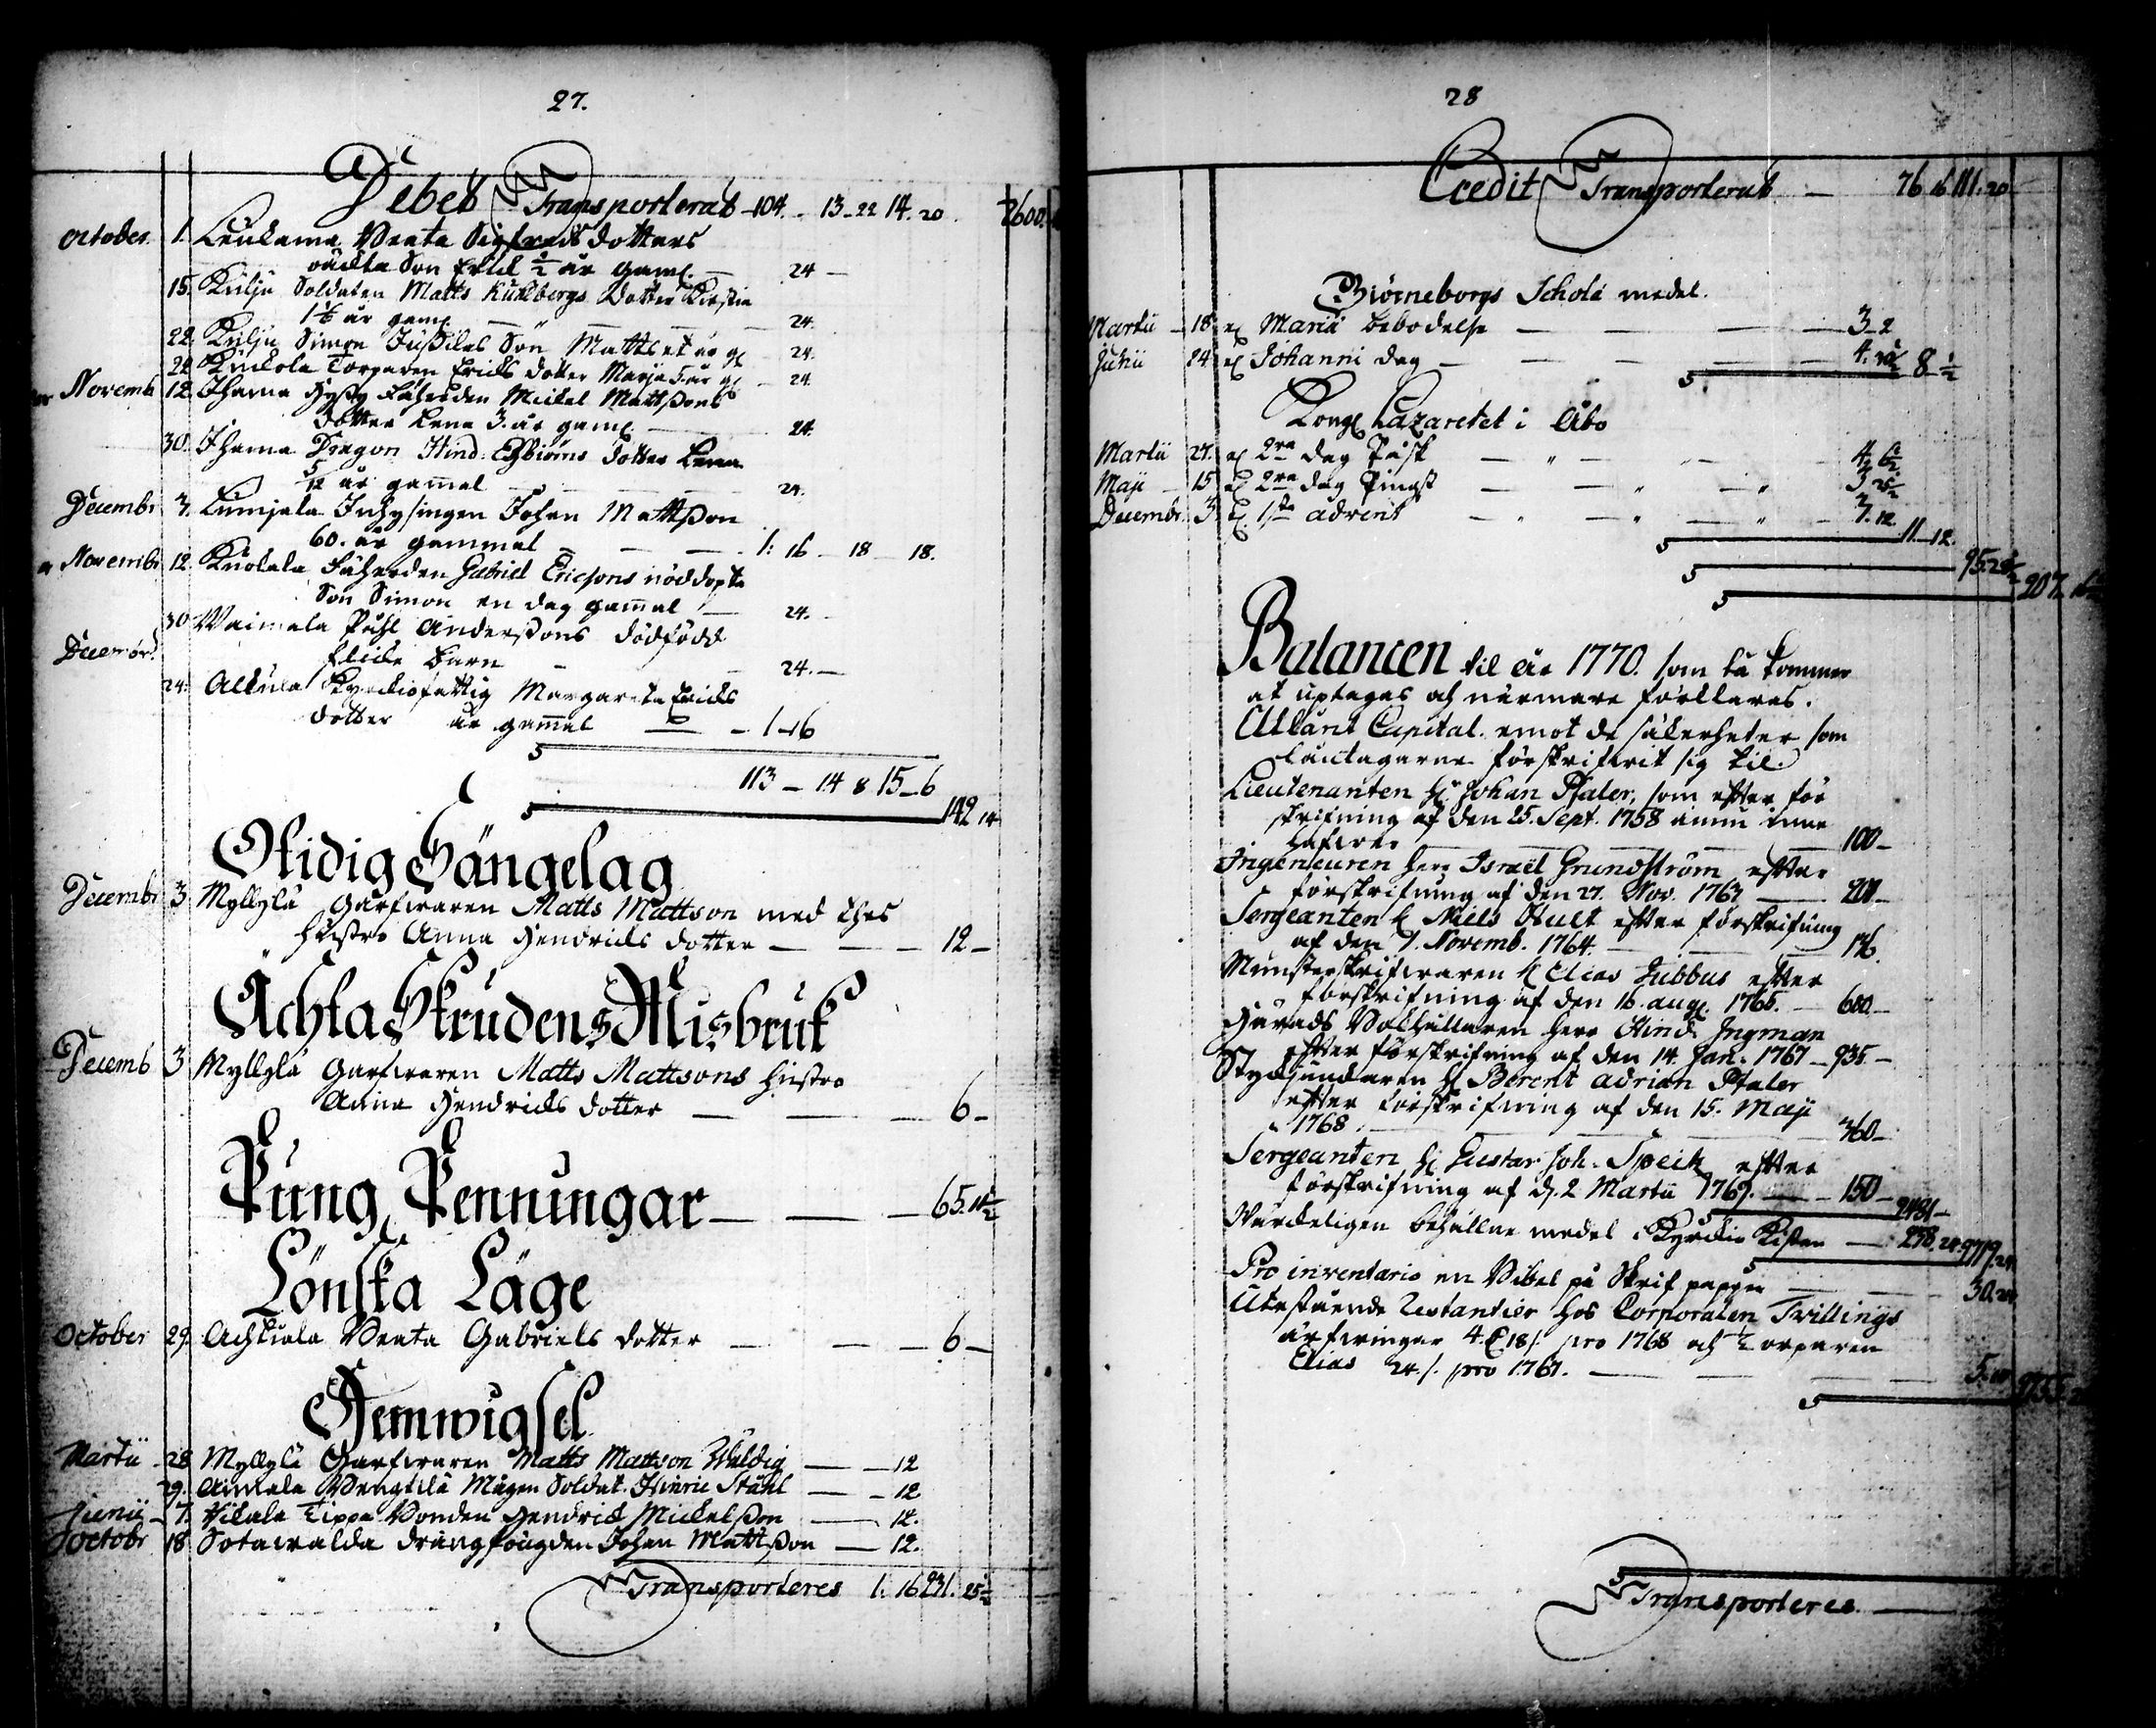 27.
Debet Transporterat 104. 13 22 14. 20. 2600.
October 1. Leukama Beata Sigfreds dotters
oäckta Son Erkil ½ år gaml. — 24 —
15. Kulju Soldaten Matts Kuhlbergs Dotter Kirstin
1½ år gaml — 24.
22. Kulju Simon Jussilas Son Matts et år gl 24.
22 Torparen Ericks dotter Marja 5. år gl — 24.
Novemb 12. Jhama Hyssy Fäherden Mickel Mattssons
dotter Lena 3. år gaml. — 24.
30. Jhama Dragon Hind: dotter Lena
5/12 år gam̄al — 24.
Decembr 3. Lumjala Inhysingen Johan Mattsson
60. år gammal — 1: 16 — 18 — 18.
Novembr 12. Kuokala Fäherden Gabriel Ericsons nöddopte
Son Simon en dag gam̄al — 24. —
30 Waimala Påhl Anderssons dödfödd
flicke barn — 24. —
Decembr.
24. Alkula Kyrckiofattig Margareta Ericks
dotter år gam̄al — 1-16
113 — 14 8 15-6
142 14
Otidig Sängelag
Decembr 3 Myllylä Garfwaren Matts Mattson med thes
hustro Anna Hendricks dotter — 12 —
Ächta Skrudens Misbruk
Decemb 3 Myllylä Garfwaren Matts Mattsons hustro
Anna Hendricks dotter — 6 —
Pung Penningar — 65. 11½
Lönska Läge
October 29. Achkiala Beata Gabriels dotter — 6 —
Hemwigsel
Martii 28 Myllylä Garfwaren Matts Mattson — 12
29. Ankala Bengtilä Mågen Soldat. Hinric Ståhl — 12
Junii 7. Tippa Bonden Hendrick Mickelsson — 12.
Octobr 18 Sotawalda drängfougden Johan Mattsson — 12.
Transporteres 1. 16 231. 25½
28
Credit Transporterat — 76 16 111. 20
Biörneborgs Schola medel.
Martii 18 ex Mariæ bebodelse — 3-2
Junii 24 ex Johanni dag — 4. 8 ½
Kongl Lazaretet i Åbo
Martii 27. ex 2ra dag Påsk — 4. 6½
Maji 15 ex 2ra dag Pingst — 3
Decembr 3 ex 1sta advent — 3. 12
11-12.
95. 207
Balancen til år 1770. som tå kommer
at uptagas och närmare förklaras.
Utlånt Capital emot de säkerheter som
låntagarne förskrifwit sig til.
Lieutenanten H: Johan Pfaler, som efter för
skrifning af den 25. Sept. 1758 ännu inne
hafwer — 100 —
Ingenieuren Herr Israël Grundström efter
förskrifning af den 27. Nov. 1763 — 200 —
Sergeanten H Niels Hult efter förskrifning
af den 7. Novemb. 1764. — 136.
Munsterskrifwaren H Elias Gubbus efter
förskrifning af den 16. aug. 1765. — 600 —
Härads Bokhållaren Herr Hind: Ingman
efter förskrifning af den 14. Jan. 1767 — 935 —
Styckjunckaren H Berent Adrian Pfaler
efter förskrifning af den 15. Maji
1768. — 360 —
Sergeanten H: Gustav Joh. Speitz efter
förskrifning af d. 2 Martii 1769. — 150 —
2481 —
Wärckeligen behållne medel i Kyrckio Kistan — 238. 24. 2719. 24
Pro inventario en Bibel på Skrif papper — 30. 24
Utestående Restantier hos Corporalen Trillings
ärfwingar 4. 18/. pro 1768 och Torparen
Elias 24./. pro 1767. — 5.
2755
Transporteres —